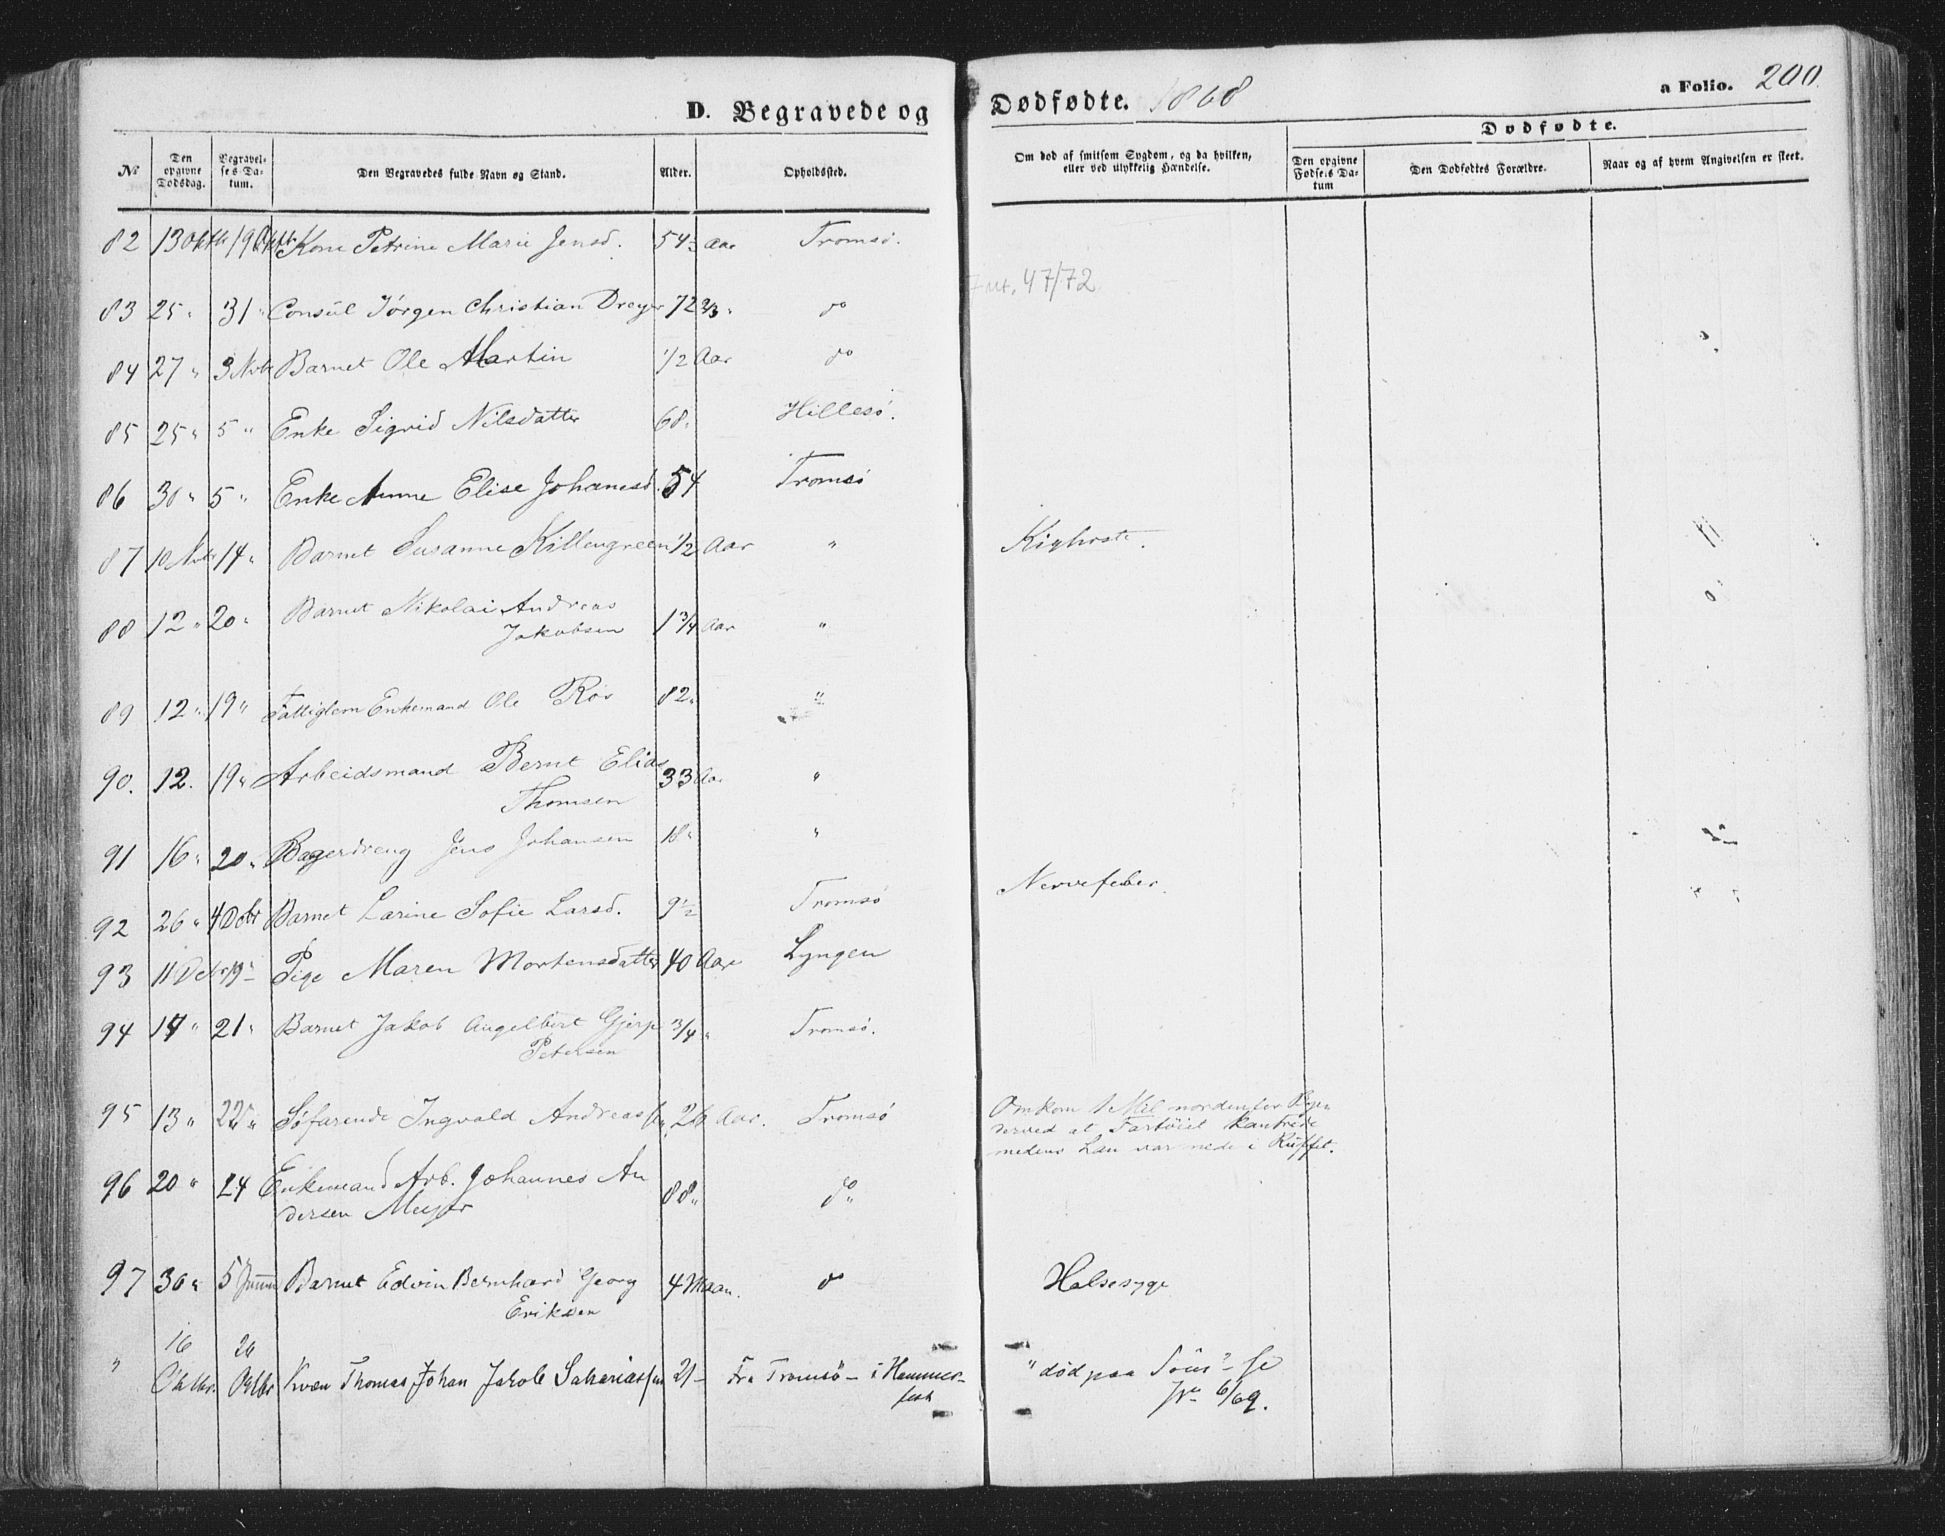 D. Begravede og Dødfødte. 1868 a Folio. 200.
Dødfødte.
№ Den opgivne Dødsdag. Begravelses Datum. Den Begravedes fulde Navn og Stand. Alder. Opholdssted. Om død af smitsom Sygdom, og da hvilken, eller ved ulykkelig Hændelse. Den opgivne Fødsels Datum Den Dødfødtes Forældre. Naar og af hvem Angivelsen er skeet.
82 13 Oktb 19 Oktb Kone Petrine Marie Jensd. 54 Aar Tromsø.
47/72
83 25 " 31 " Consul Jørgen Christian Dreyer 72 2/3 " do
84 27 " 3 Novb Barnet Ole Martin 1/2 Aar do
85 25 " 5 " Enke Sigrid Nilsdatter 68 " Hillesø.
86 30 " 5 " Enke Anne Elise Johannesd. 54 Tromsø
87 10 Novb 14 " Barnet Susanne Killengreen 1/2 Aar " Kighoste.
88 12 " 20 " Barnet Nikolai Andreas
Jakobsen 1 3/4 Aar "
89 12 " 19 " Fattiglem Enkemand Ole Røs 82 " "
90. 12. 19 " Arbeidsmand Bernt Elias
Thomsen 33 Aar "
91 16 " 20 " Bagerdreng Jens Johansen 18 " "
92 26 " 4 Decbr Barnet Larine Sofie Larsd. 9 1/2 Tromsø Nervefeber.
93 11 Decbr 19 " Pige Maren Mortensdatter 40 Aar Lyngen
94 17 " 21 " Barnet Jakob Angelbert Gjerp
Petersen 3/4 " Tromsø.
95 13 " 22 " Søfarende Ingvald Andreas 26 Aar. Tromsø
Omkom 1 Mil nordenfor
derved at Fartøiet kantrede
medens han var nede i Ruffet.
96 20 " 24 Enkemand Arb. Johannes An
dersen Meyer 88 " do "
97 30 " 5 Barnet Edvin Bernhard Georg
Eriksen 4 Maan. do Halsesyge
" 16 Oktbr. 20 Oktbr Kvæn Thomas Johan Jakob Sakariassen 21 – Fra Tromsø – i Hammer-
fest
" død paa se
No 6/69.